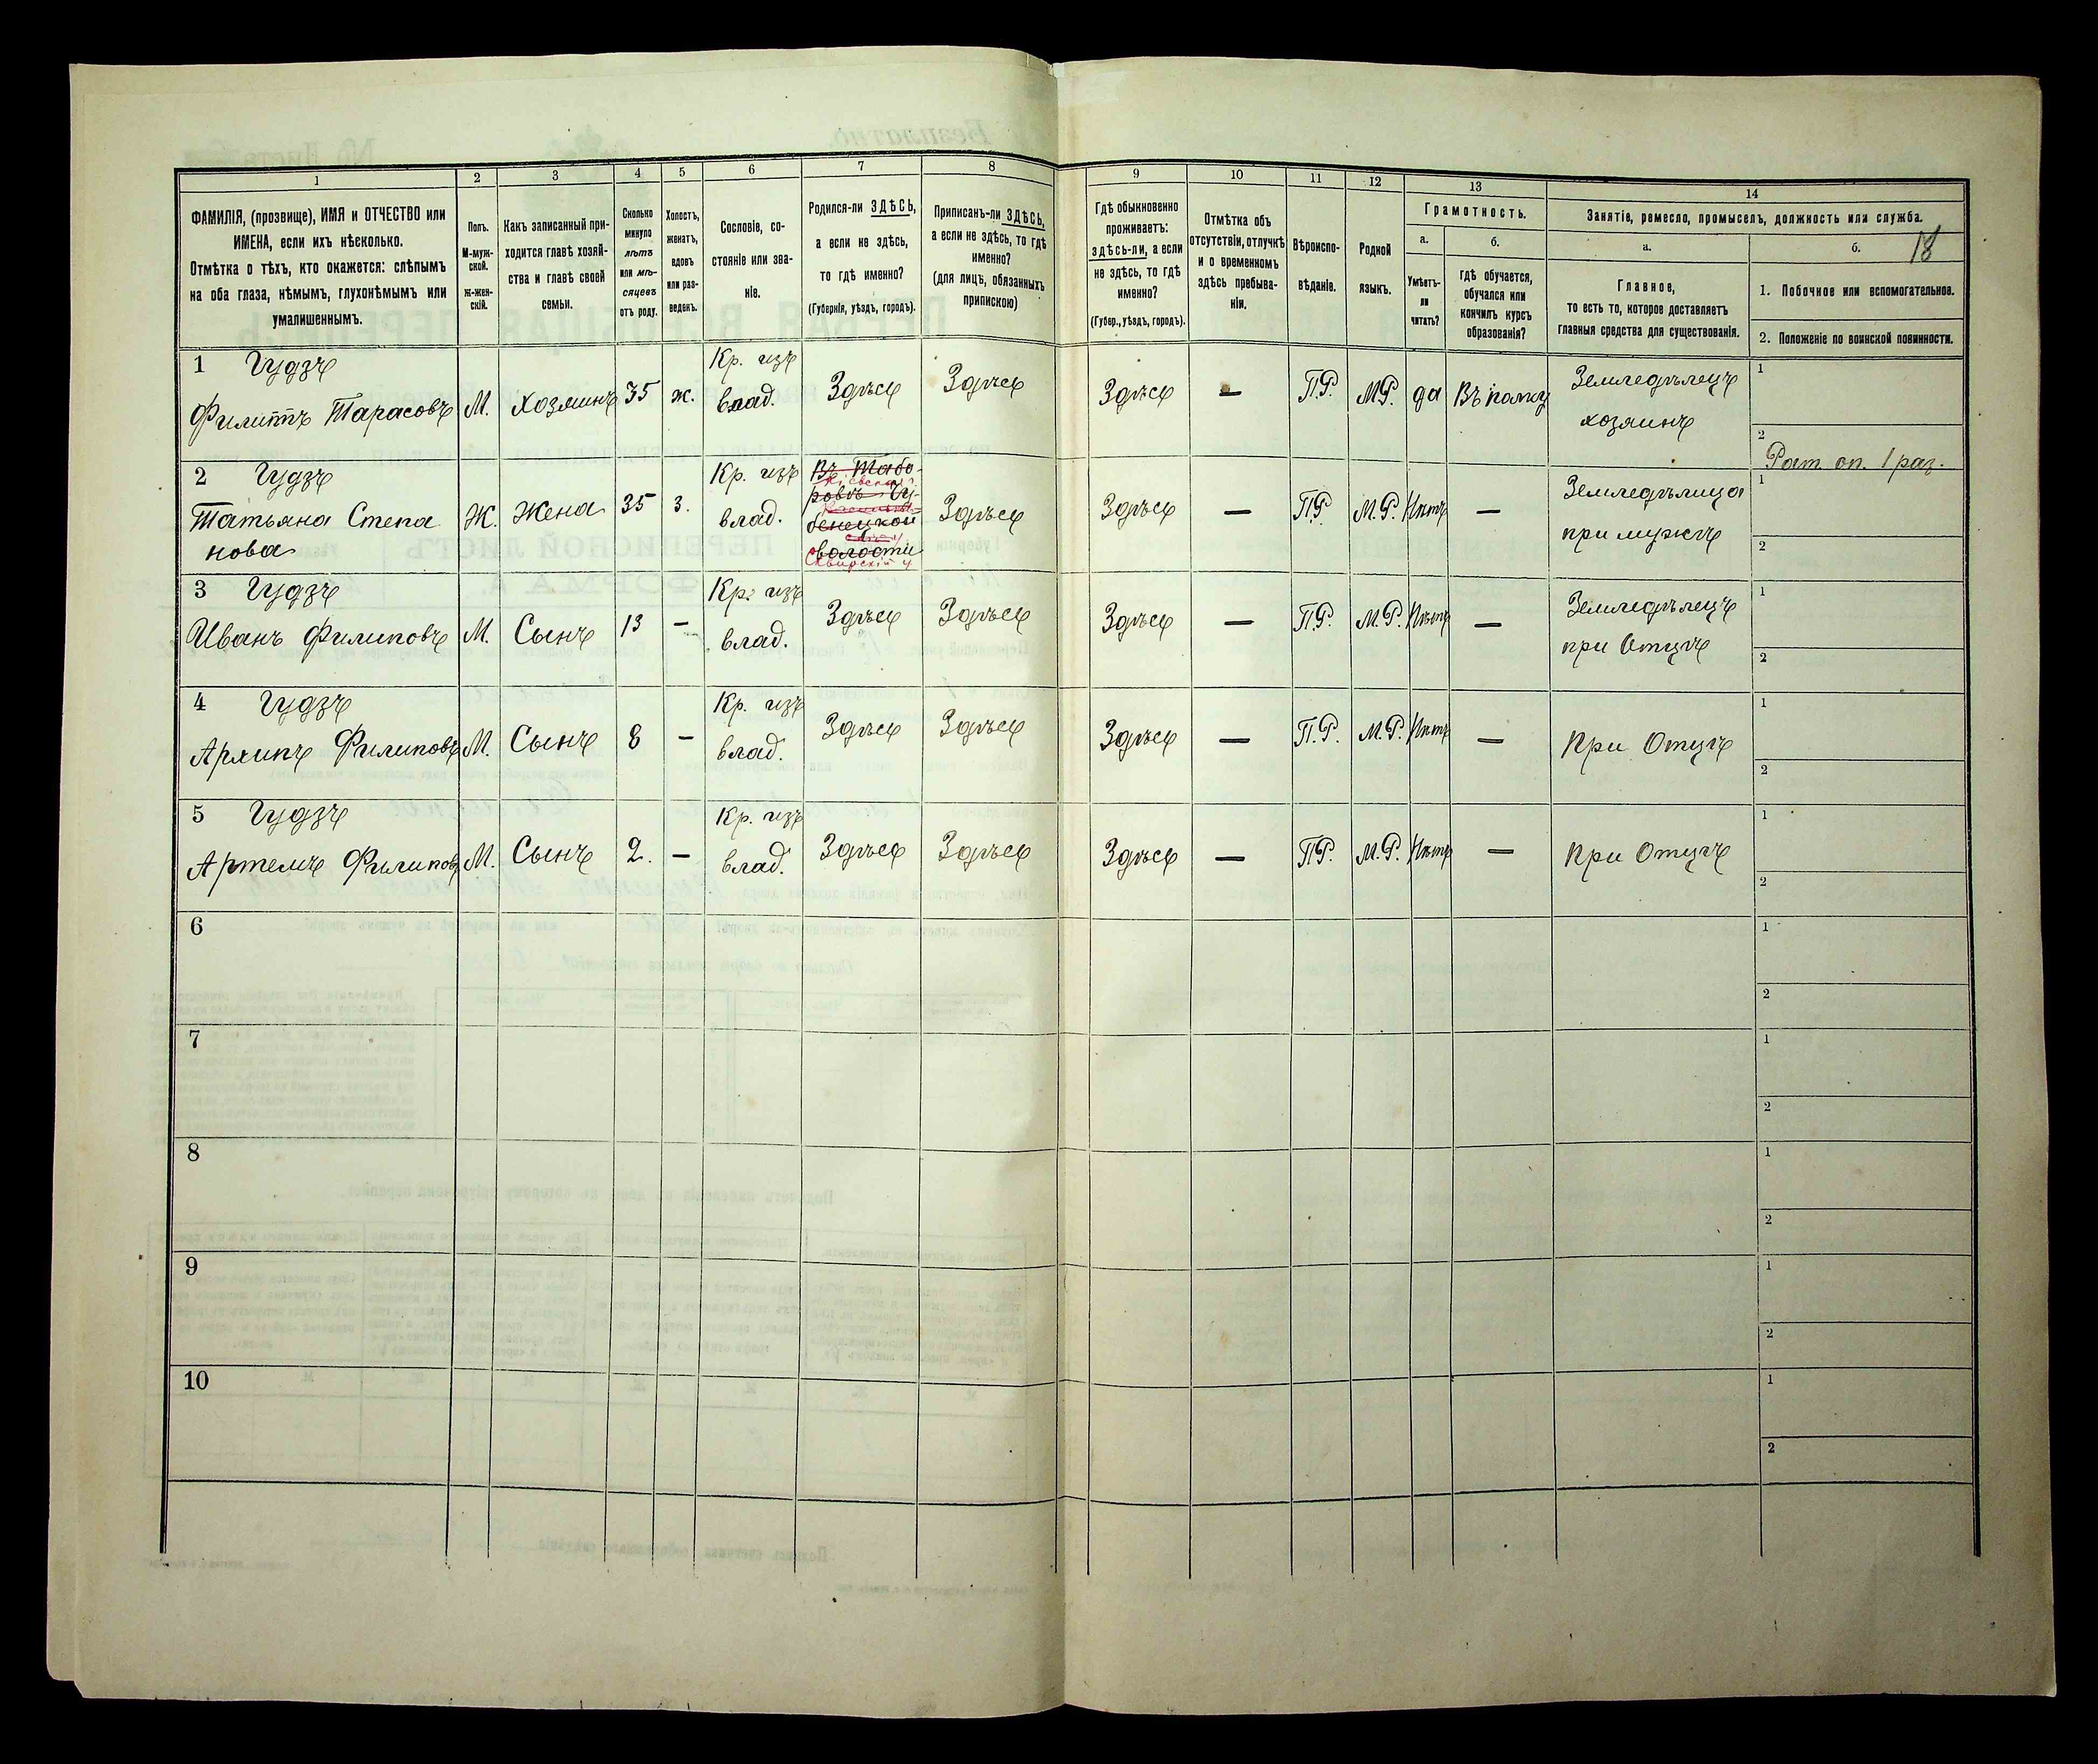 1
2
3
4
5
6
7
8
9
10
11
12
13
14
ФАМИЛІЯ, (прозвище), ИМЯ и ОТЧЕСТВО или
ИМЕНА, если ихъ нѣсколько.
Отмѣтка о тѣхъ, кто окажется: слѣпымъ
на оба глаза, нѣмымъ, глухонѣмымъ или
умалишеннымъ.
Полъ.
М-муж-
ской.
Ж-жен-
скій.
Какъ записанный при-
ходится главѣ хозяй-
ства и главѣ своей
семьи.
Сколько
минуло
лѣтъ
или мѣ-
сяцевъ
отъ роду.
Холостъ,
женатъ,
вдовъ
или раз-
веденъ.
Сословіе, со-
стояніе или зва-
ніе.
Родился-ли ЗДѢСЬ,
а если не здѣсь,
то гдѣ именно?
(Губернія, уѣздъ, городъ).
Приписанъ-ли ЗДѢСЬ,
а если не здѣсь, то гдѣ
именно?
(для лицъ, обязанныхъ
припискою)
Гдѣ обыкновенно
проживаетъ:
здѣсь-ли, а если
не здѣсь, то гдѣ
именно?
(Губер., уѣздъ, городъ).
Отмѣтка объ
отсутствіи, отлучкѣ
и о временномъ
здѣсь пребыва-
ніи.
Вѣроиспо-
вѣданіе.
Родной
языкъ.
Грамотность.
а.
Умѣетъ-
ли
читать?
б.
гдѣ обучается,
обучался или
кончилъ курсъ
образованія?
Занятіе, ремесло, промыселъ, должность или служба.
а.
Главное,
то есть то, которое доставляетъ
главныя средства для существованія.
б.
18
1. Побочное или вспомогательное.
2. Положеніе по воинской повинности.
1 Гудзь
Филиппъ Тарасовъ
М.
Хозяинъ
35
ж.
Кр. изъ
влад.
Здѣсь
Здѣсь
Здѣсь
—
П.Р.
М.Р.
да
Въ полку
Земледѣлецъ
хозяинъ
1
2
Рат. оп. 1 раз.
2 Гудзь
Татьяна Степа
нова
Ж.
Жена
35
З.
Кр. изъ
влад.
Въ Табо-
ровкѣ
волости
Сквирскій у
Здѣсь
Здѣсь
—
П.Р.
М.Р.
Нѣтъ
—
Земледѣлица
при мужѣ
1
2
3 Гудзь
Иванъ Филиповъ
М.
Сынъ
13
—
Кр. изъ
влад.
Здѣсь
Здѣсь
Здѣсь
—
П.Р.
М.Р.
Нѣтъ
—
Земледѣлецъ
при Отцѣ
1
2
4 Гудзь
Архипъ Филиповъ
М.
Сынъ
8
—
Кр. изъ
влад.
Здѣсь
Здѣсь
Здѣсь
—
П.Р.
М.Р.
Нѣтъ
—
При Отцѣ
1
2
5 Гудзь
Артемъ Филиповъ
М.
Сынъ
2.
—
Кр. изъ
влад.
Здѣсь
Здѣсь
Здѣсь
—
П.Р.
М.Р.
Нѣтъ
—
При Отцѣ
1
2
6
1
2
7
1
2
8
1
2
9
1
2
10
1
2